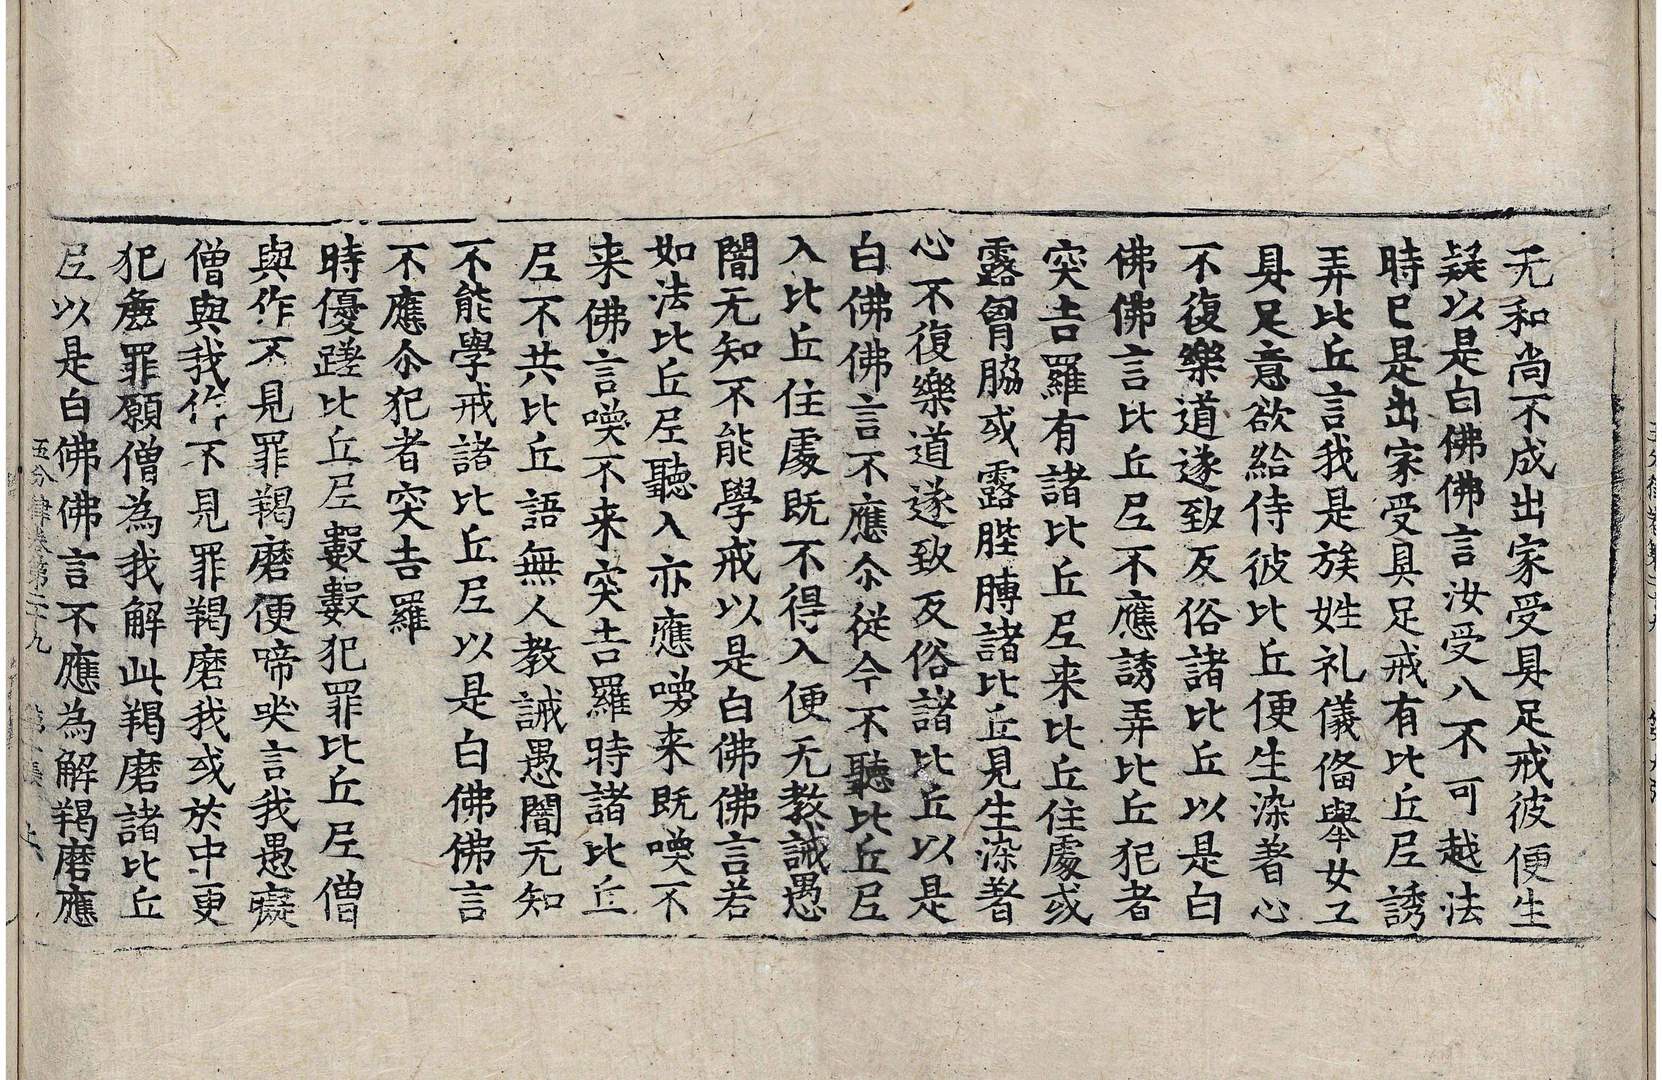 无和尚不成出家受具足戒彼便生
疑以是白佛佛言汝受八不可越法
時已是出家受具足戒有比丘尼誘
弄比丘言我是族姓礼儀俻舉女工
具足意欲給侍彼比丘便生染著心
不復樂道遂致反俗諸比丘以是白
佛佛言比丘尼不應誘弄比丘犯者
突吉羅有諸比丘尼来比丘住處或
露胷脇或露䏶膊諸比丘見生染著
心不復樂道遂致反俗諸比丘以是
白佛佛言不應尒從今不聽比丘尼
入比丘住處既不得入便无教誡愚
闇无知不能學戒以是白佛佛言若
如法比丘尼聽入亦應喚来既喚不
来佛言喚不来突吉羅時諸比丘
尼不共比丘語無人教誡愚闇无知
不能學戒諸比丘尼以是白佛佛言
不應尒犯者突吉羅
時優蹉比丘尼數數犯罪比丘尼僧
與作不見罪羯磨便啼哭言我愚癡
僧與我作不見罪羯磨我或於中更
犯麁罪願僧為我解此羯磨諸比丘
尼以是白佛佛言不應為解羯磨應
五分律卷第二十九 第十張